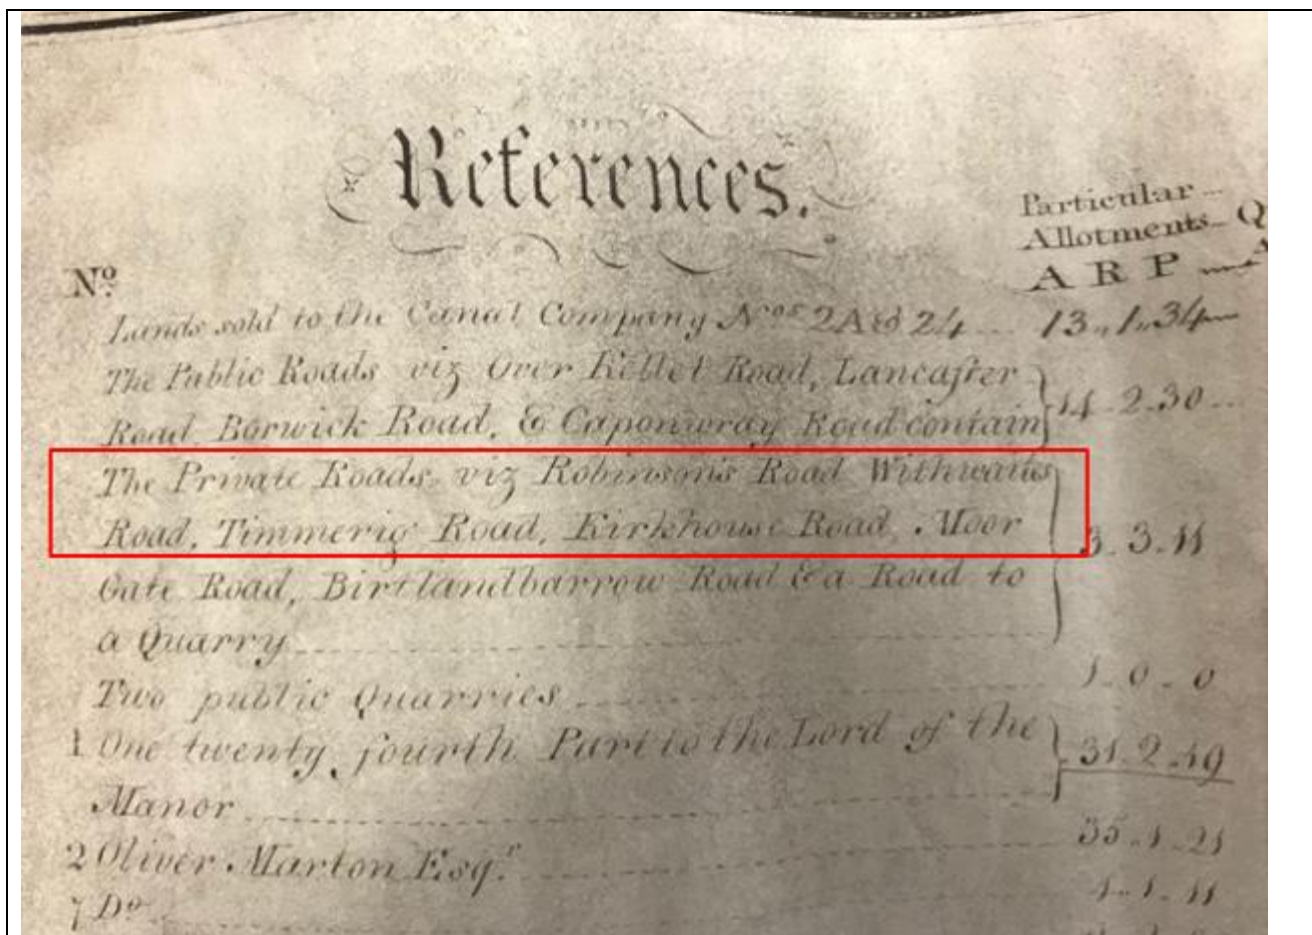 References.
Particular
Allotments Q
Nº. A R P A
Lands sold to the Canal Company Nºs 2A & 24 13 1 34
The Public Roads viz Over Kellet Road, Lancaster
Road, Borwick Road, & Caponwray Road contain 14 2 30
The Private Roads viz Robinson's Road Withwaits
Road, Timmerig Road, Kirkhouse Road, Moor
3 3 11
Gate Road, Birtlandbarrow Road & a Road to
a Quarry
Two public Quarries 1 0 0
1 One twenty fourth Part to the Lord of the
Manor 31 2 19
2 Oliver Marton Esqr. 35 1 21
7 Do 1 1 11